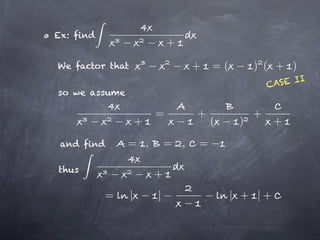 Ex: find ∫ 4x / (x³ − x² − x + 1) dx
We factor that x³ − x² − x + 1 = (x − 1)²(x + 1)
CASE II
so we assume
4x / (x³ − x² − x + 1) = A / (x − 1) + B / (x − 1)² + C / (x + 1)
and find A = 1, B = 2, C = −1
thus ∫ 4x / (x³ − x² − x + 1) dx
= ln |x − 1| − 2 / (x − 1) − ln |x + 1| + C